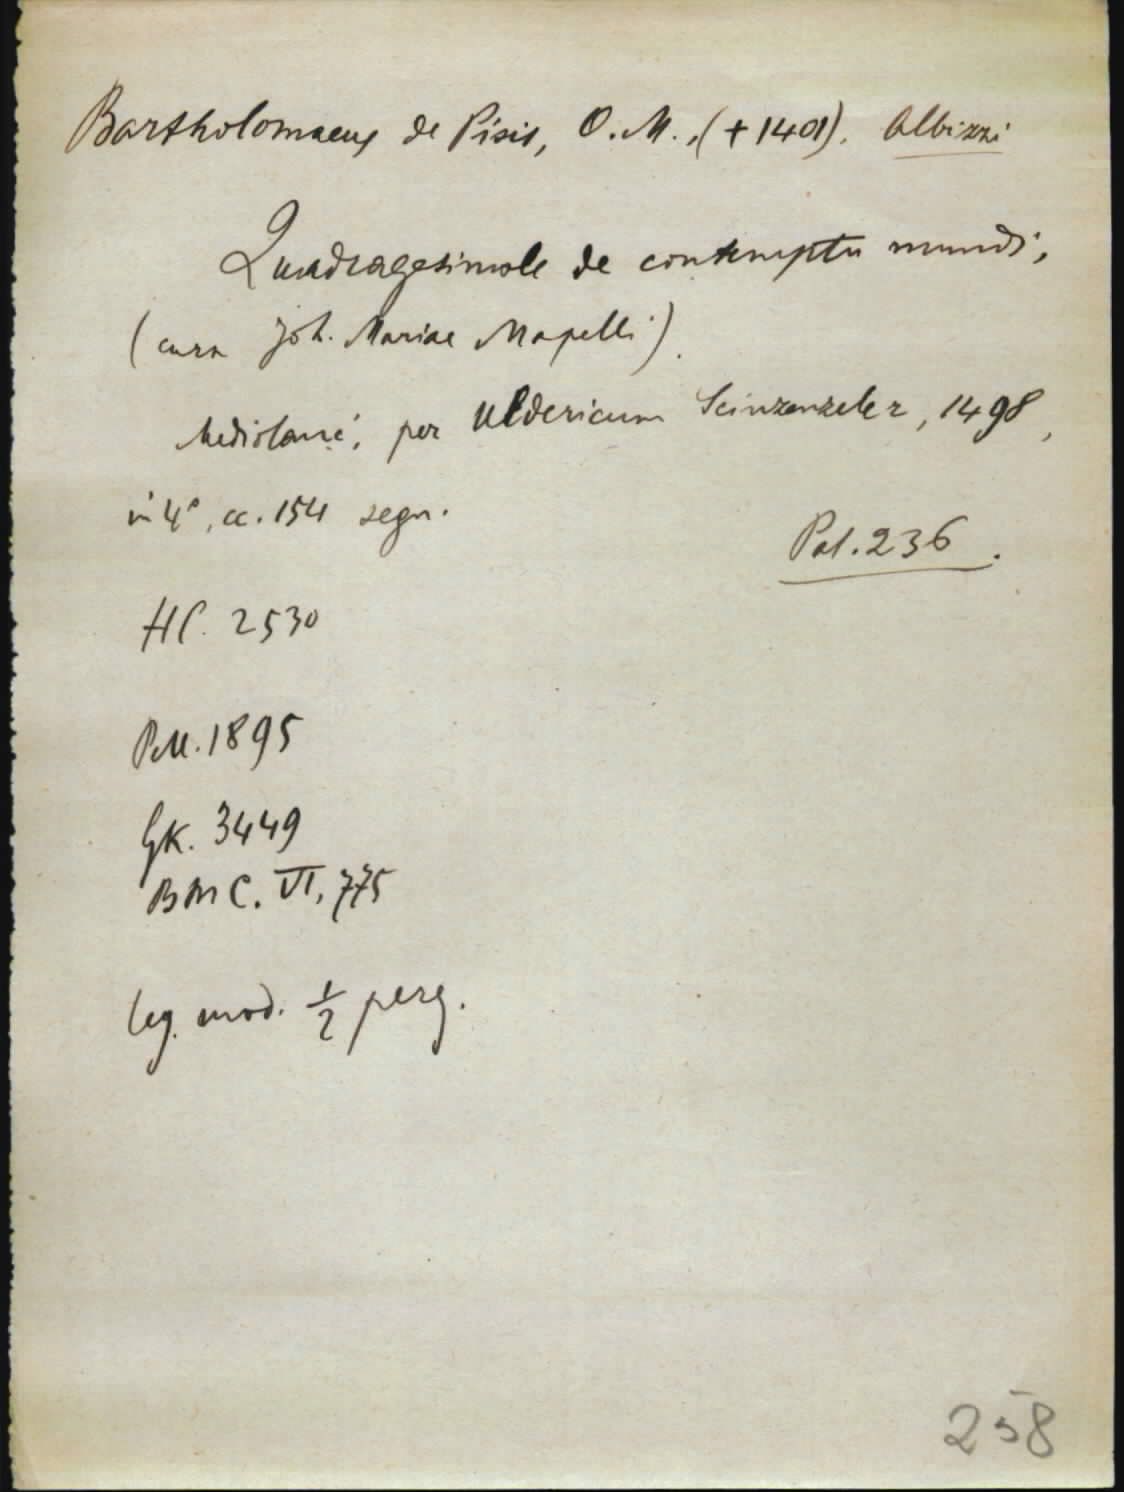 Bartholomaeus de Pisis, O. M., († 1401). Albizzi
Quadragesimale de contemptu mundi,
(cura Joh. Mariae Mapelli).
Mediolani, per Uldericum Scinzenzeler, 1498,
in 4°, cc. 154 segn.
Pal. 236.
HC. 2530
Pell. 1895
GK. 3449
BMC. VI, 775
leg. mod. 1/2 perg.
258